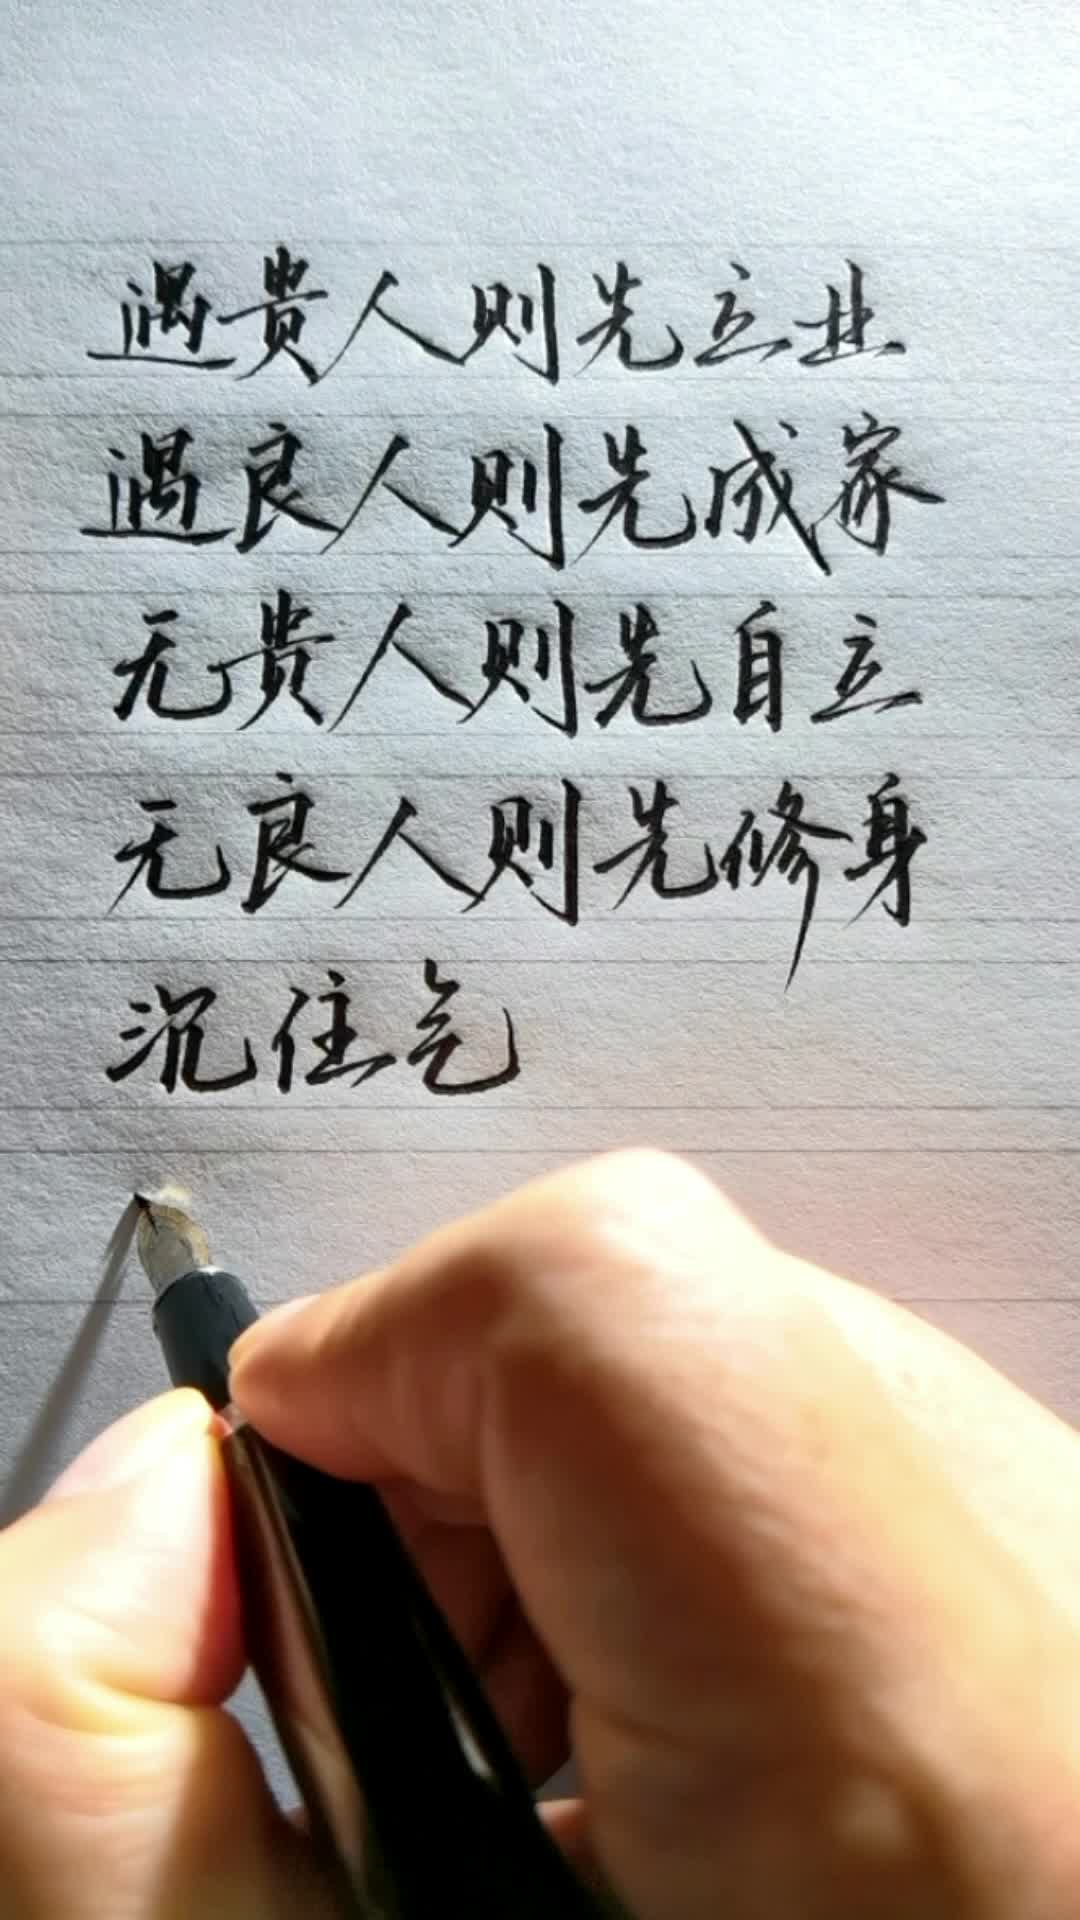 遇贵人则先立业
遇良人则先成家
无贵人则先自立
无良人则先修身
沉住气